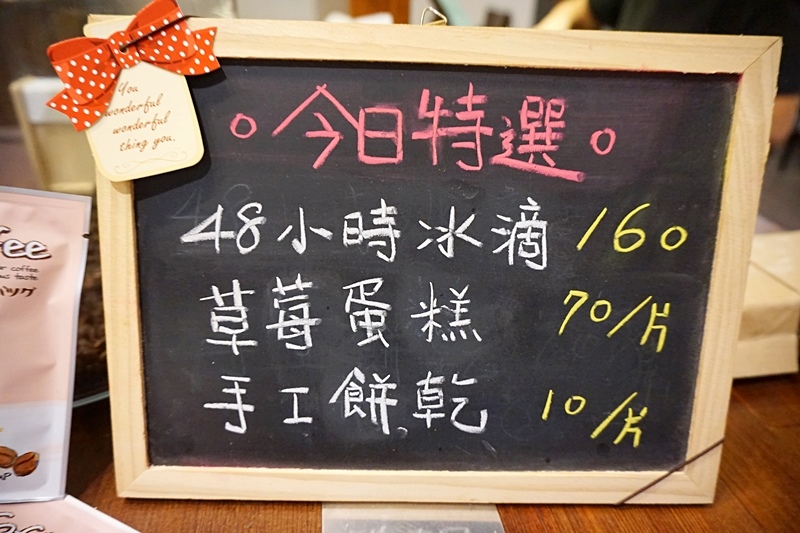 You
wonderful
wonderful
thing you.
今日特選
48小時冰滴 160
草莓蛋糕 70/片
手工餅乾 10/片